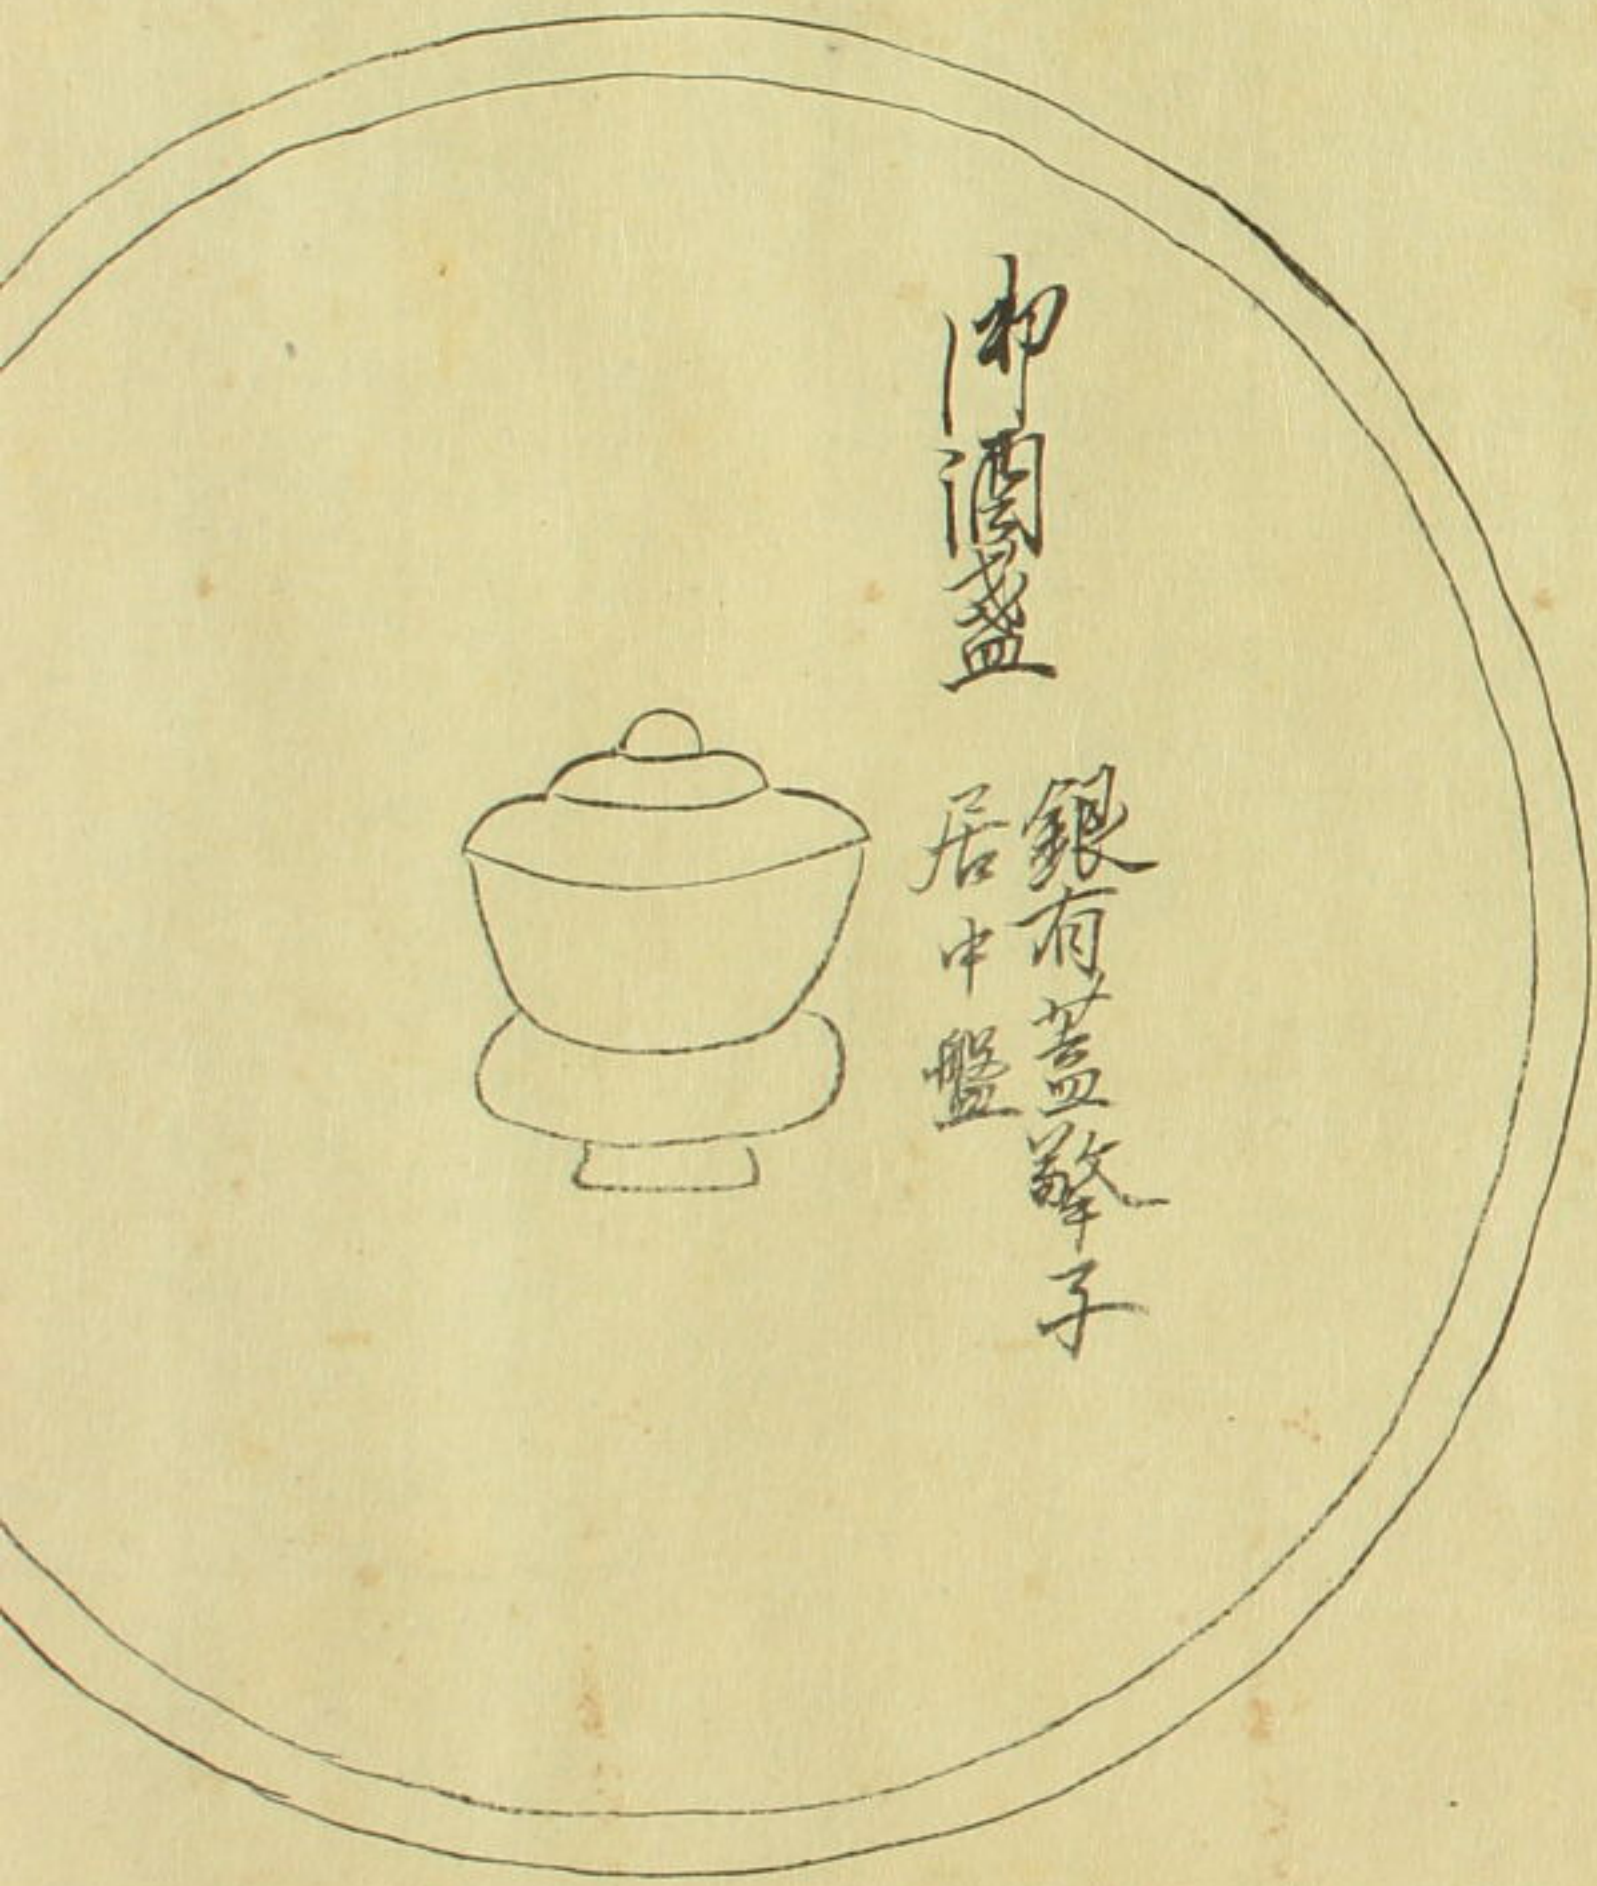 御酒盞
銀有蓋擎子
居中盤